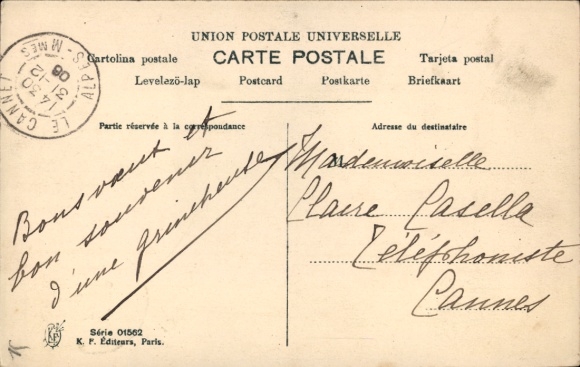 UNION POSTALE UNIVERSELLE
CARTE POSTALE
Cartolina postale
Tarjeta postal
Levelező-lap Postcard Postkarte Briefkaart
LE CANNET
ALPES-MMES
14 30
31 12
08
Partie réservée à la correspondance
Adresse du destinataire
Bons vœux et
bon souvenir
d'une grincheuse
Mademoiselle
Claire Casella
Téléphoniste
Cannes
Série 01562
K. F. Éditeurs, Paris.